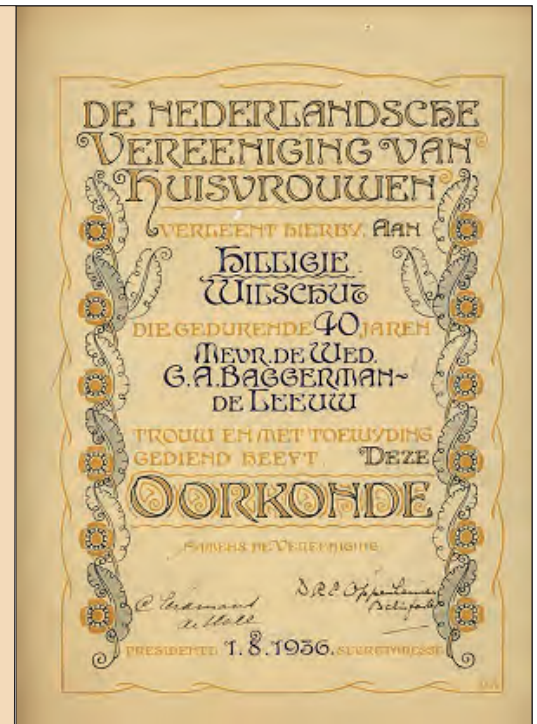 DE NEDERLANDSCHE
VEREENIGING VAN
HUISVROUWEN
VERLEENT HIERBY, AAN
HILLIGJE
WILSCHUT
DIE GEDURENDE 40 JAREN
MEVR. DE WED.
G.A. BAGGERMAN-
DE LEEUW
TROUW EN MET TOEWYDING
GEDIEND HEEFT DEZE
OORKONDE
NAMENS DE VEREENIGING
PRESIDENTE 1.8.1936. SECRETARESSE